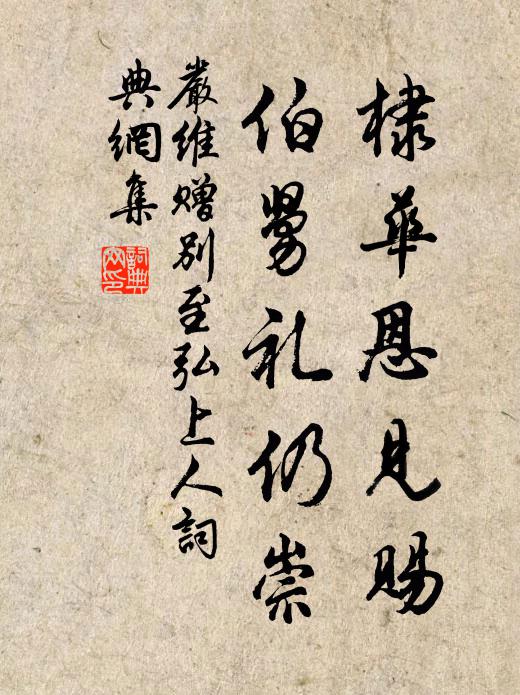 棣華恩見賜
伯舅礼仍崇
嚴維贈別至弘上人詞
典網集
詞典